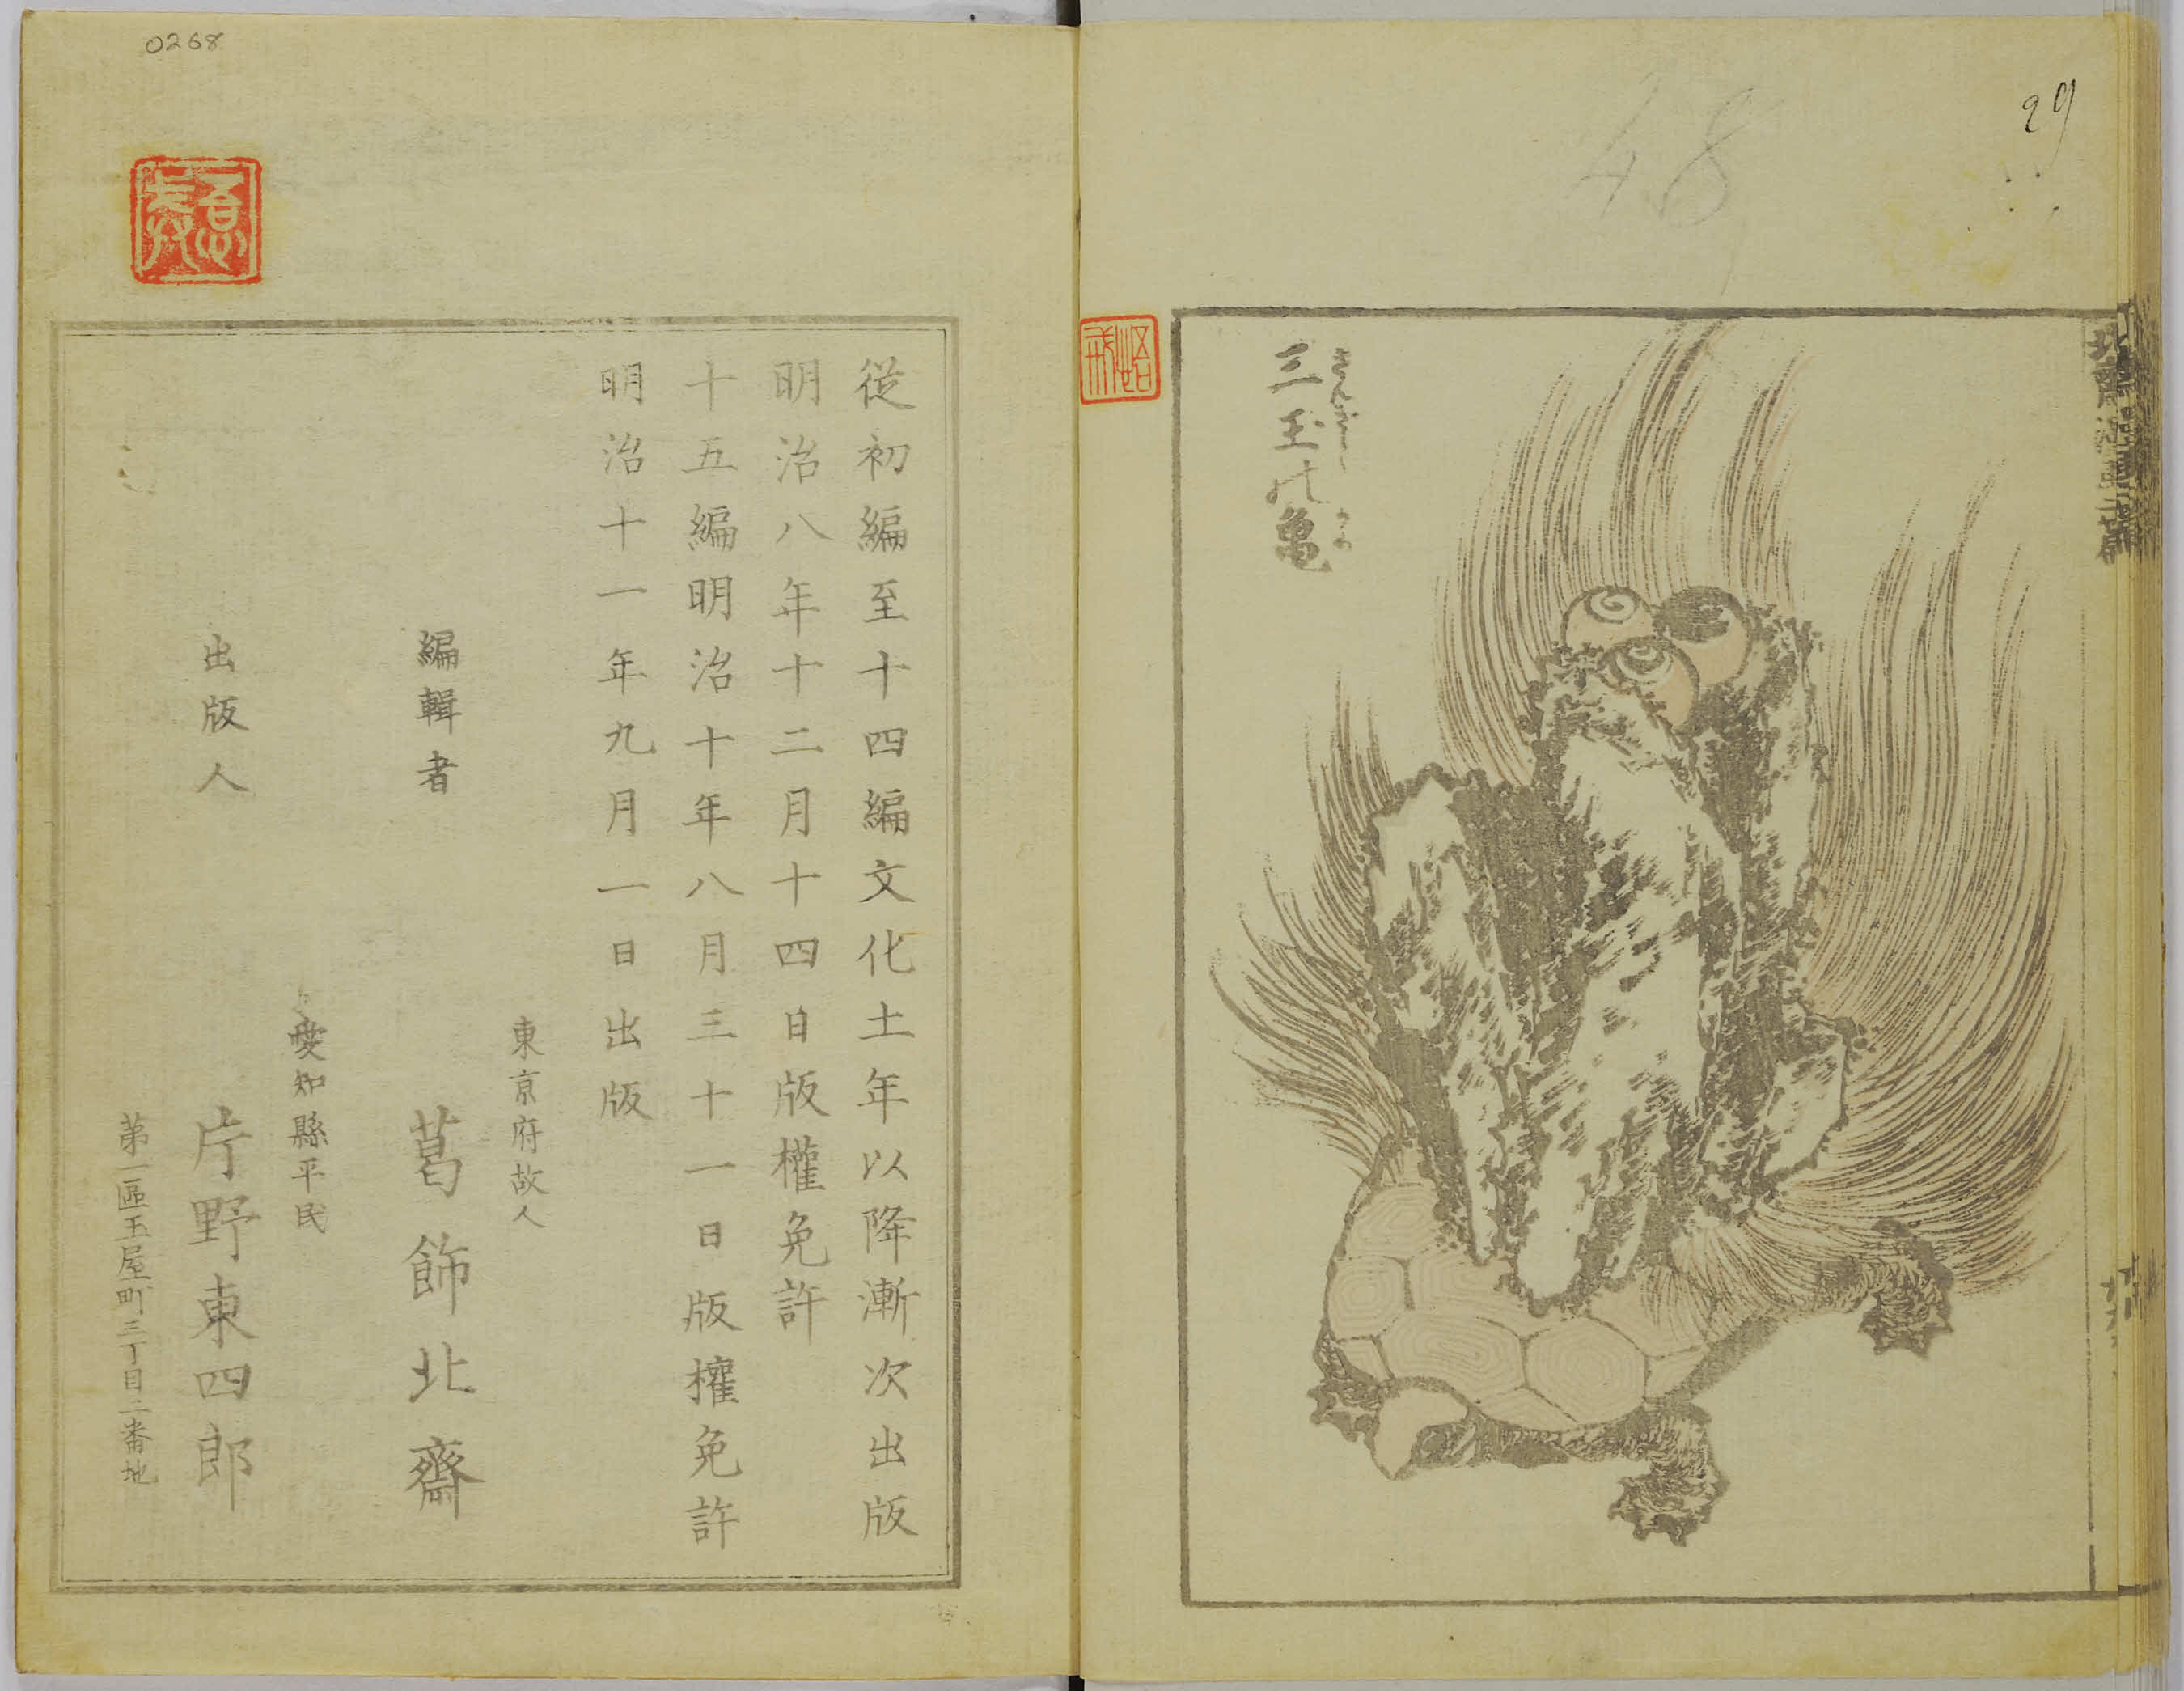 29
48
三玉の亀
さんぎょくかめ
0268
従初編至十四編文化十年以降漸次出版
明治八年十二月十四日版權免許
十五編明治十年八月三十一日版權免許
明治十一年九月一日出版
東京府故人
編輯者 葛飾北齋
愛知縣平民
出版人 片野東四郎
第一區玉屋町三丁目二番地